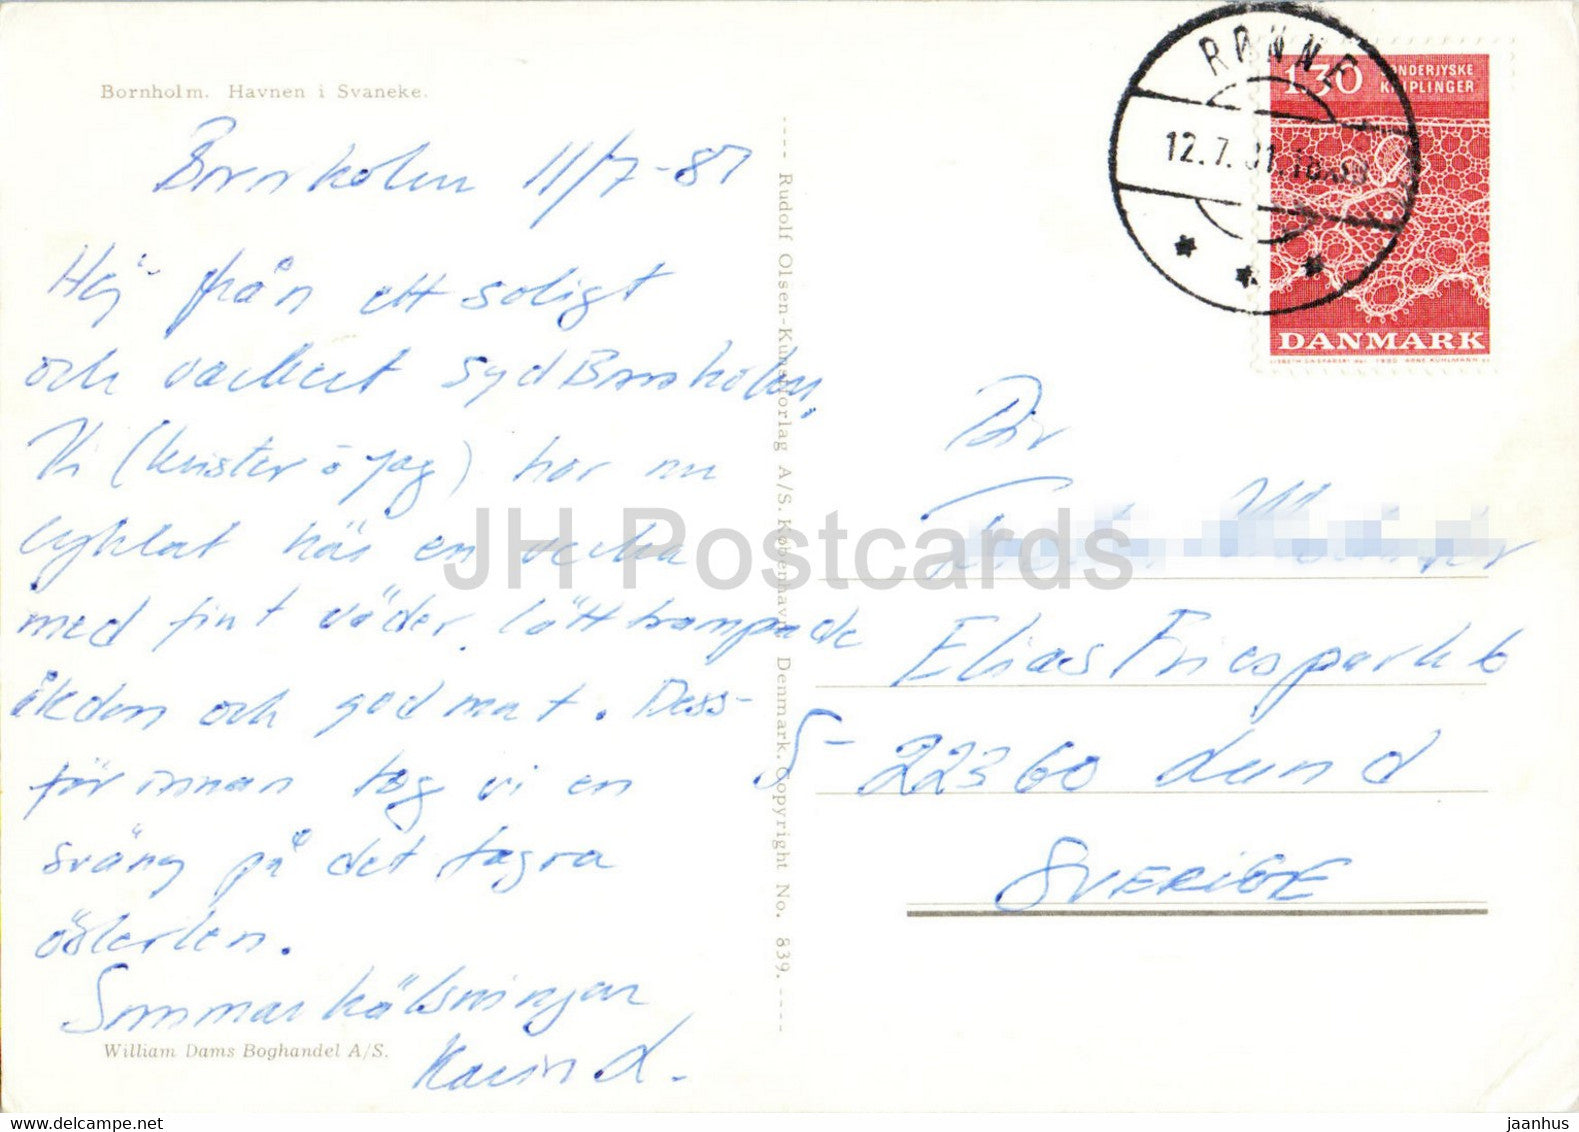 Bornholm. Havnen i Svaneke.
Bornholm 11/7-81
Hej från ett soligt
och vackert sydBornholm.
Vi (kuster o jag) har nu
cyklat här en vecka
med fint väder, lätttrampade
åkdon och god mat. Dess-
förinnan tog vi en
sväng på det fagra
österlen.
Sommarhälsningar
Karin L.
William Dams Boghandel A/S.
---- Rudolf Olsen-Kunstforlag A/S. København, Denmark. Copyright No. 839. ----
RØNNE
12.7.81.18.
130 SØNDERJYSKE
KNIPLINGER
DANMARK
1980 ARNE KÜHLMANN
Elias Friespark 6
S-22360 Lund
SVERIGE
JH Postcards
www.delcampe.net
jaanhus